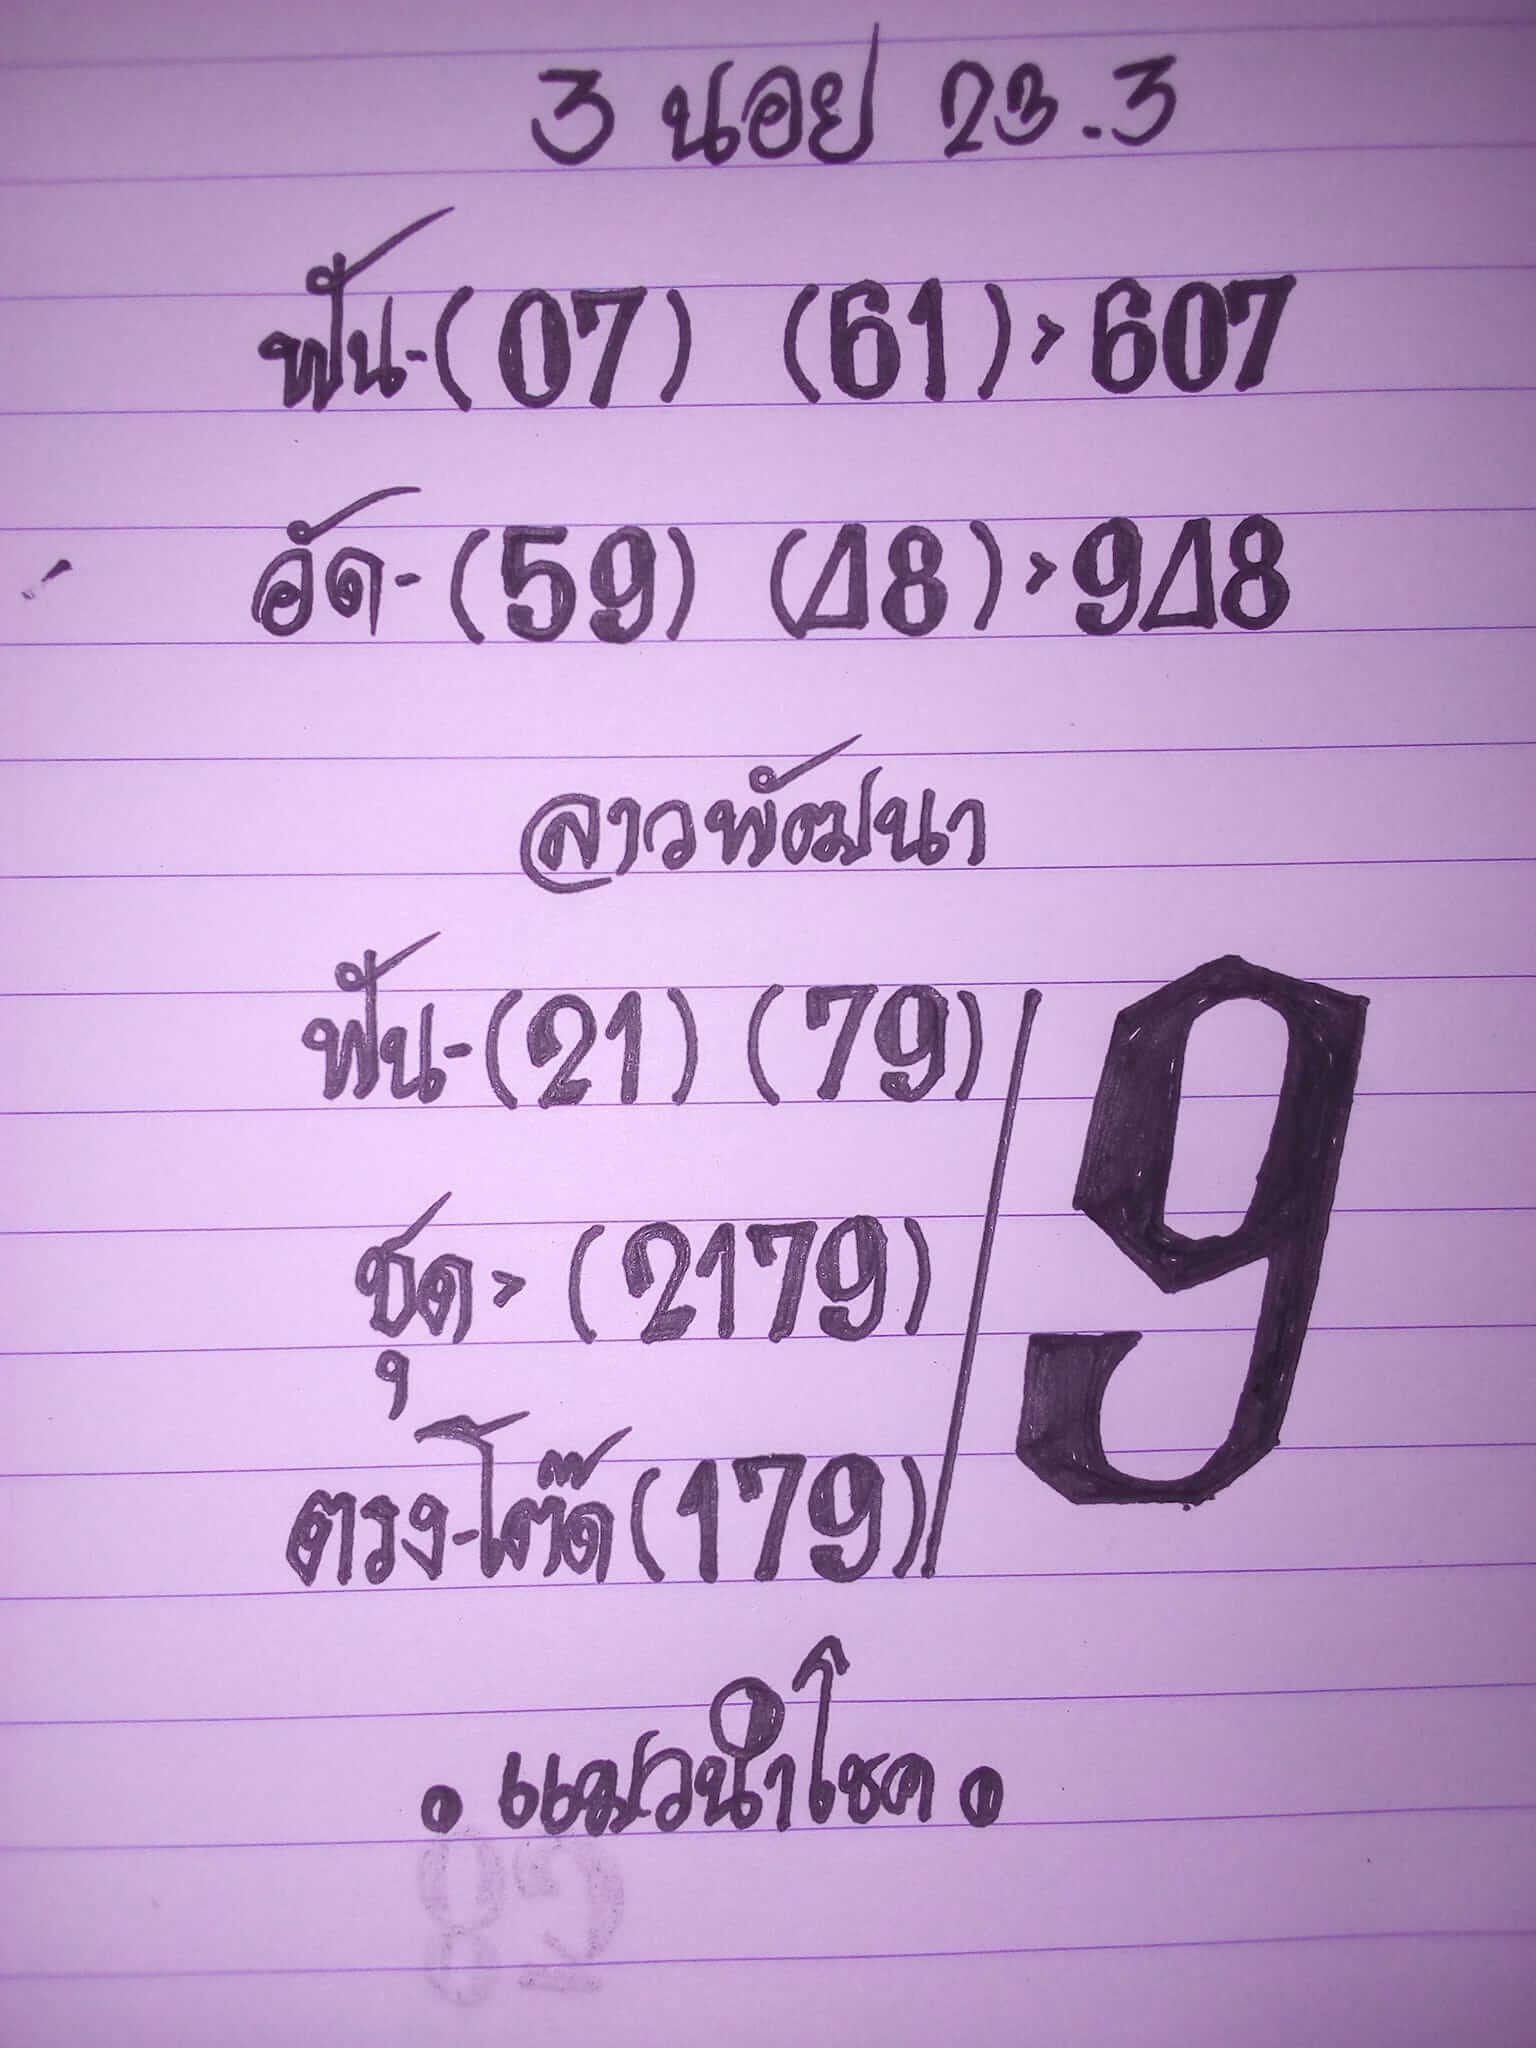 3 นอย 23.3
ฟัน-(07) (61)>607
อัด-(59) (48)>948
ลาวพัฒนา
ฟัน-(21) (79)
9
ชุด>(2179)
ตรง-โต๊ด(179)
.แมวนำโชค.